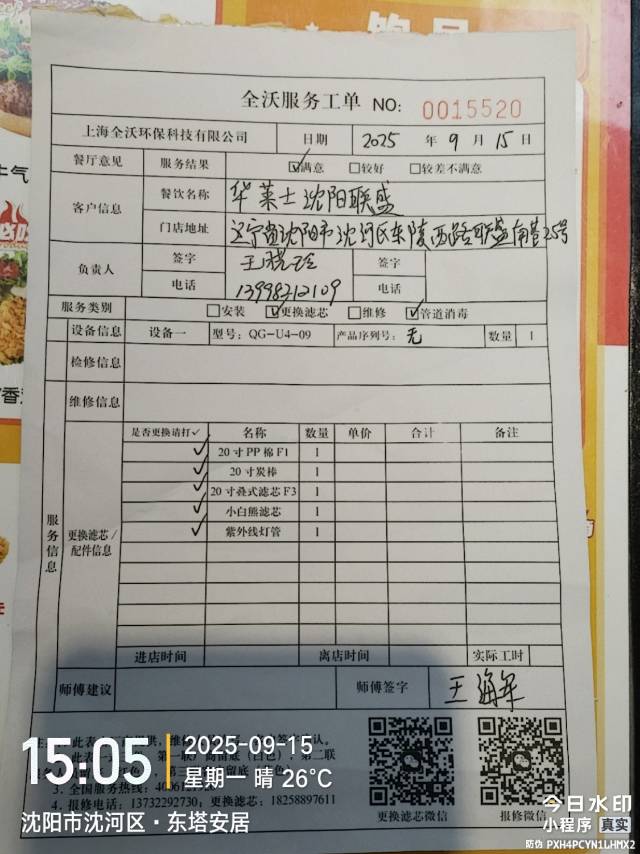 全沃服务工单 NO: 0015520
上海全沃环保科技有限公司 日期 2025 年 9 月 15 日
餐厅意见 服务结果 ☑满意 □较好 □较差不满意
客户信息 餐饮名称 华莱士沈阳联盛
门店地址 辽宁省沈阳市沈河区东陵西路联盛南巷25号
负责人 签字 签字
电话 13998212109 电话
服务类别 □安装 ☑更换滤芯 □维修 ☑管道消毒
设备信息 设备一 型号: QG-U4-09 产品序列号: 无 数量 1
检修信息
维修信息
服务信息
更换滤芯/配件信息
是否更换请打✓ 名称 数量 单价 合计 备注
✓ 20寸PP棉F1 1
✓ 20寸炭棒 1
✓ 20寸叠式滤芯F3 1
✓ 小白熊滤芯 1
✓ 紫外线灯管 1
进店时间 离店时间 实际工时
师傅建议 师傅签字 王海军
3.全国服务热线:
4.报修电话: 13732292730, 更换滤芯: 18258897611
更换滤芯微信 报修微信
15:05 2025-09-15
星期一 晴 26°C
沈阳市沈河区·东塔安居
今日水印
小程序 真实
防伪 PXH4PCYN1LHMX2